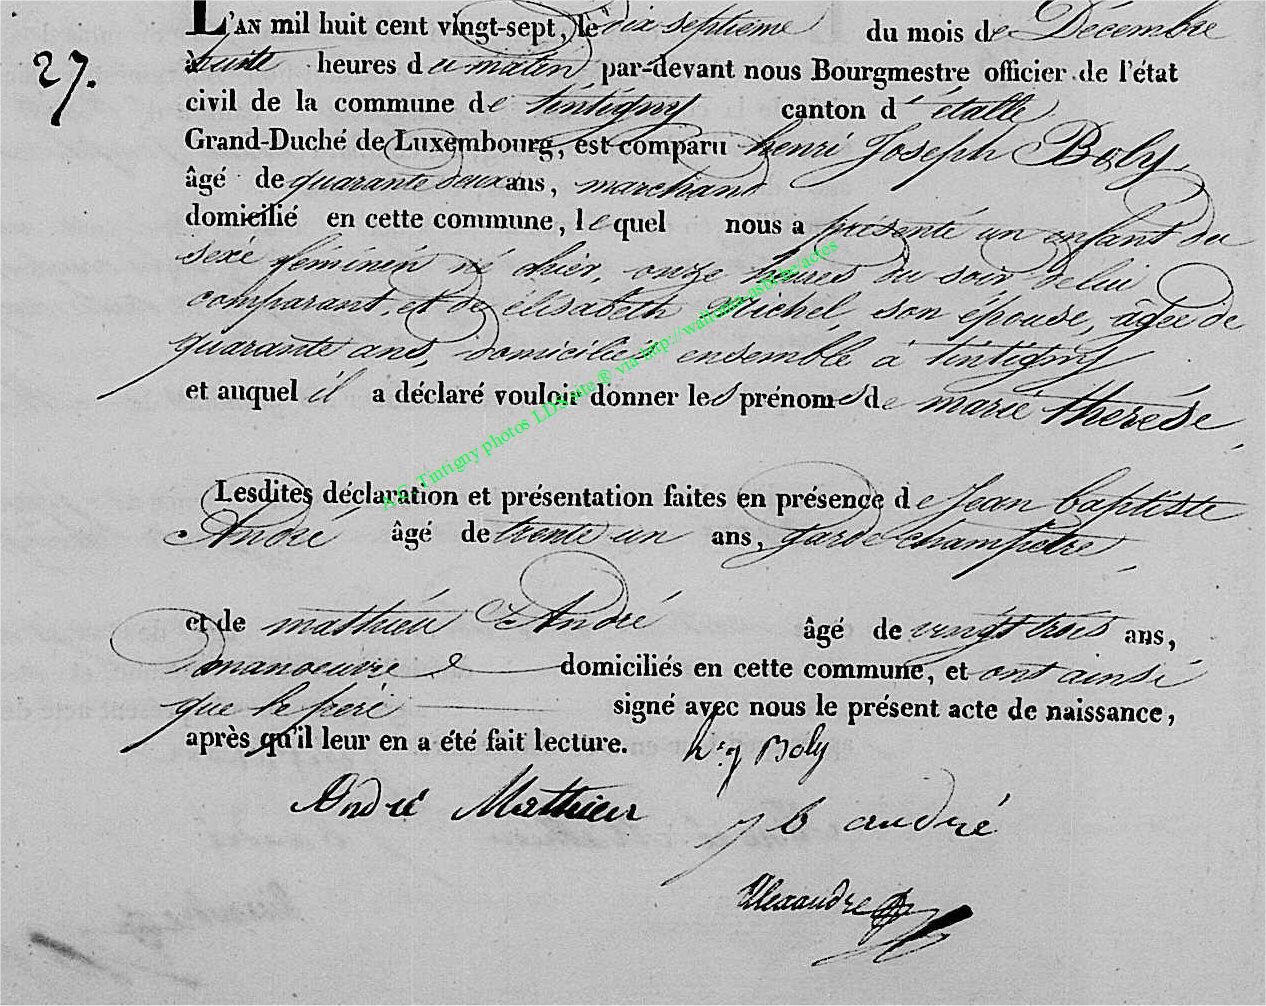 L'AN mil huit cent vingt-sept, le dix septième du mois de Décembre
27.
à huit heures du matin par-devant nous Bourgmestre officier de l'état
civil de la commune de tintigny canton d'étalle
Grand-Duché de Luxembourg, est comparu henri Joseph Boly,
âgé de quarante deux ans, marchand
domicilié en cette commune, lequel nous a présenté un enfant du
sexe féminin né hier, onze heures du soir de lui
comparant, et de élisabeth Michel, son épouse, âgée de
quarante ans, domiciliés ensemble à tintigny
et auquel il a déclaré vouloir donner les prénoms de marie therése
A.C. Tintigny photos LDS site ® via http://wallonia-asbl.be/actes
Lesdites déclaration et présentation faites en présence de Jean baptiste
André âgé de trente un ans, garde champêtre
et de mathieu André âgé de vingt trois ans,
manoeuvre domiciliés en cette commune, et ont ainsi
que le père signé avec nous le présent acte de naissance,
après qu'il leur en a été fait lecture. h. j Boly
André Mathieu
j b andré
Alexandre